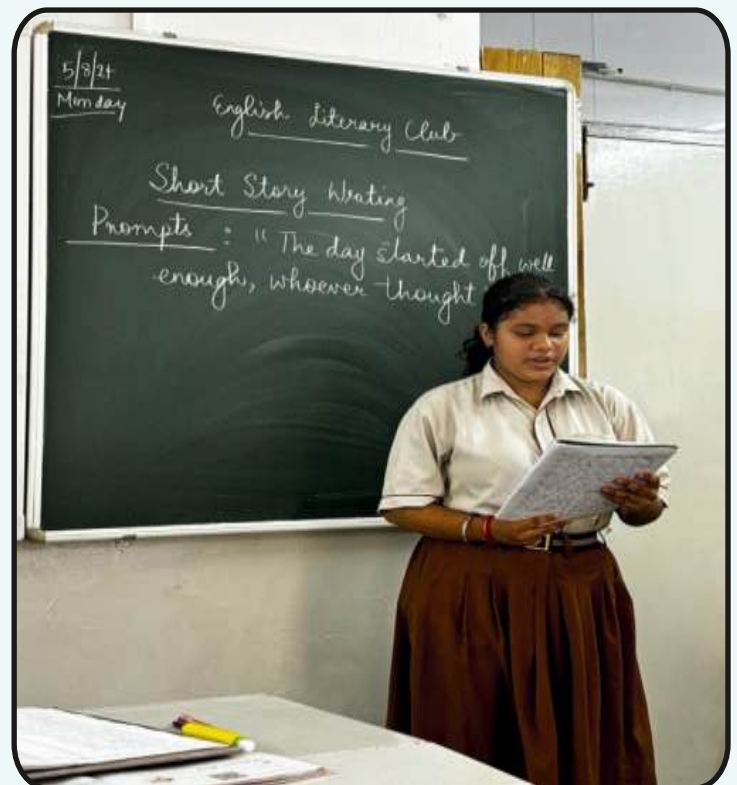 5/8/24
Monday
English Literary Club
Short Story Writing
Prompts : " The day started off well
enough, whoever thought